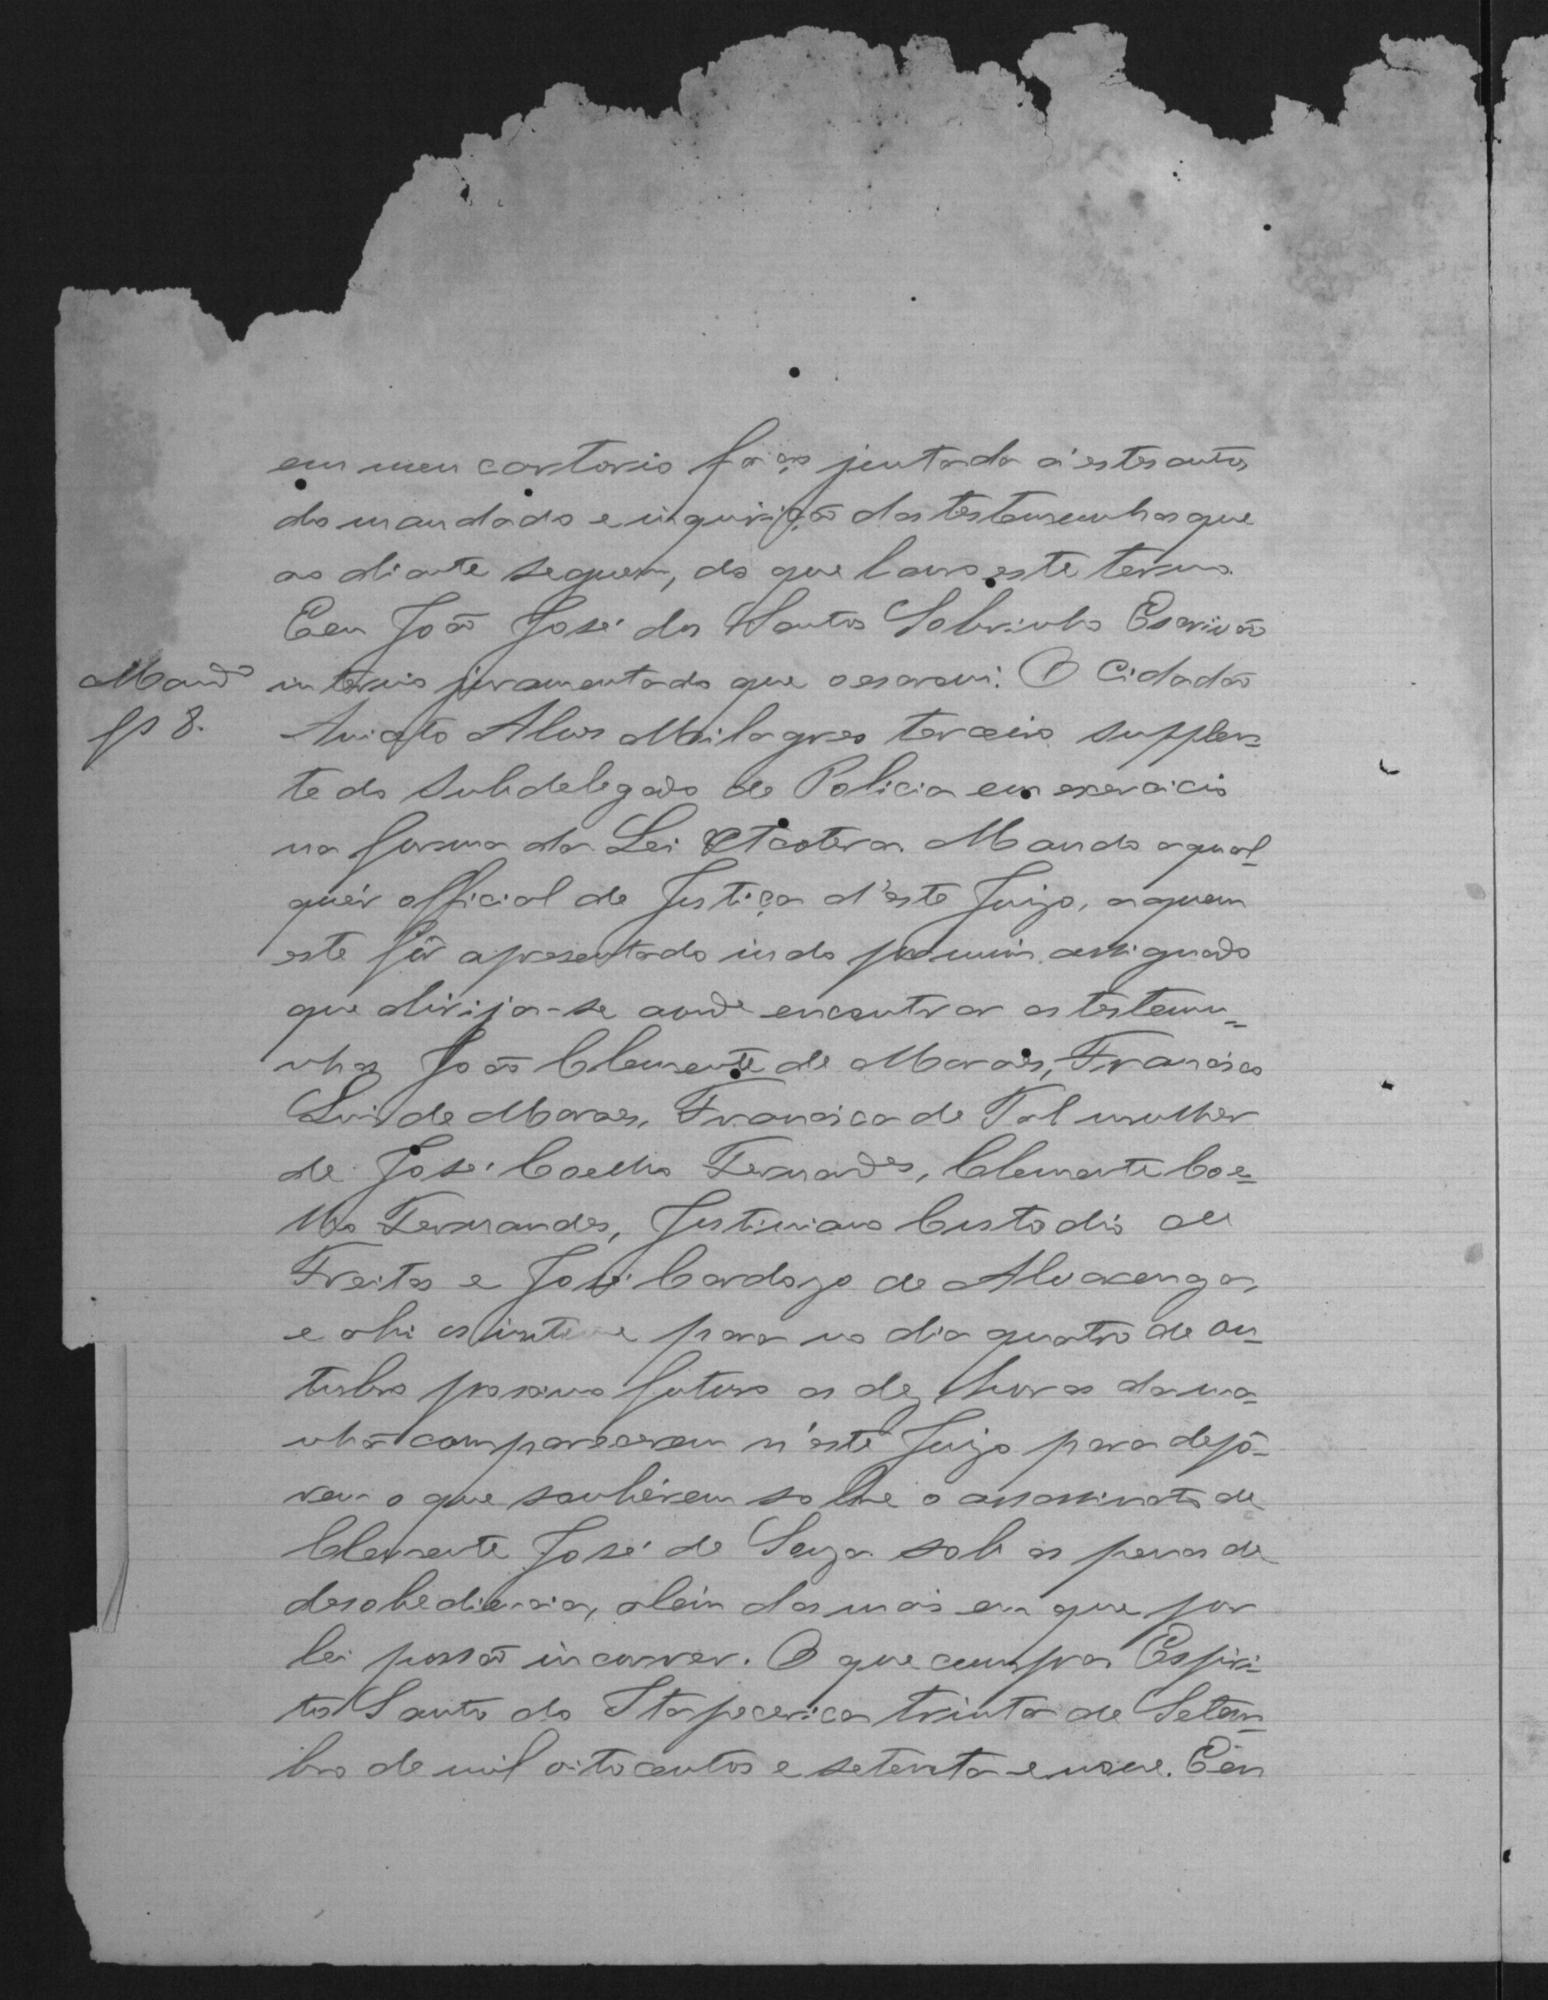 em meu cartorio faço juntada á estes autos
do mandado e inquirição das testemunhas que
ao diante seguem, do que lavro este termo.
Eeu João José dos Santos Sobrinho Escrivão
interino juramentado que o escrevi. O Cidadão
Mand.º
fs 8.
Aniceto Alves Milagres terceiro supplen=
te do Subdelegado de Policia em exercicio
na forma da Lei etcetera. Mando a qual=
quér official de Justiça d'este Juizo, a quem
este fôr apresentado indo por mim assignado
que dirija-se aonde encontrar as testemu=
nhas João Clemente de Moraes, Francisco
Luis de Moraes, Francisca de Tal mulher
de José Coelho Fernandes, Clemente Coe=
lho Fernandes, Justiniano Custodio de
Freitas e José Cardozo de Alvarenga,
e ahi as intime para no dia quatro de ou=
tubro proximo futuro as dez horas da ma=
nhã comparecerem n'este Juizo para depô=
rem o que soubérem sobre o assassinato de
Clemente José de Souza sob as penas de
desobediencia, além das mais em que por
lei possão incorrer. O que cumpra. Espiri=
to Santo do Itapecerica trinta de Setem=
bro de mil oitocentos e setenta e nove. Eeu